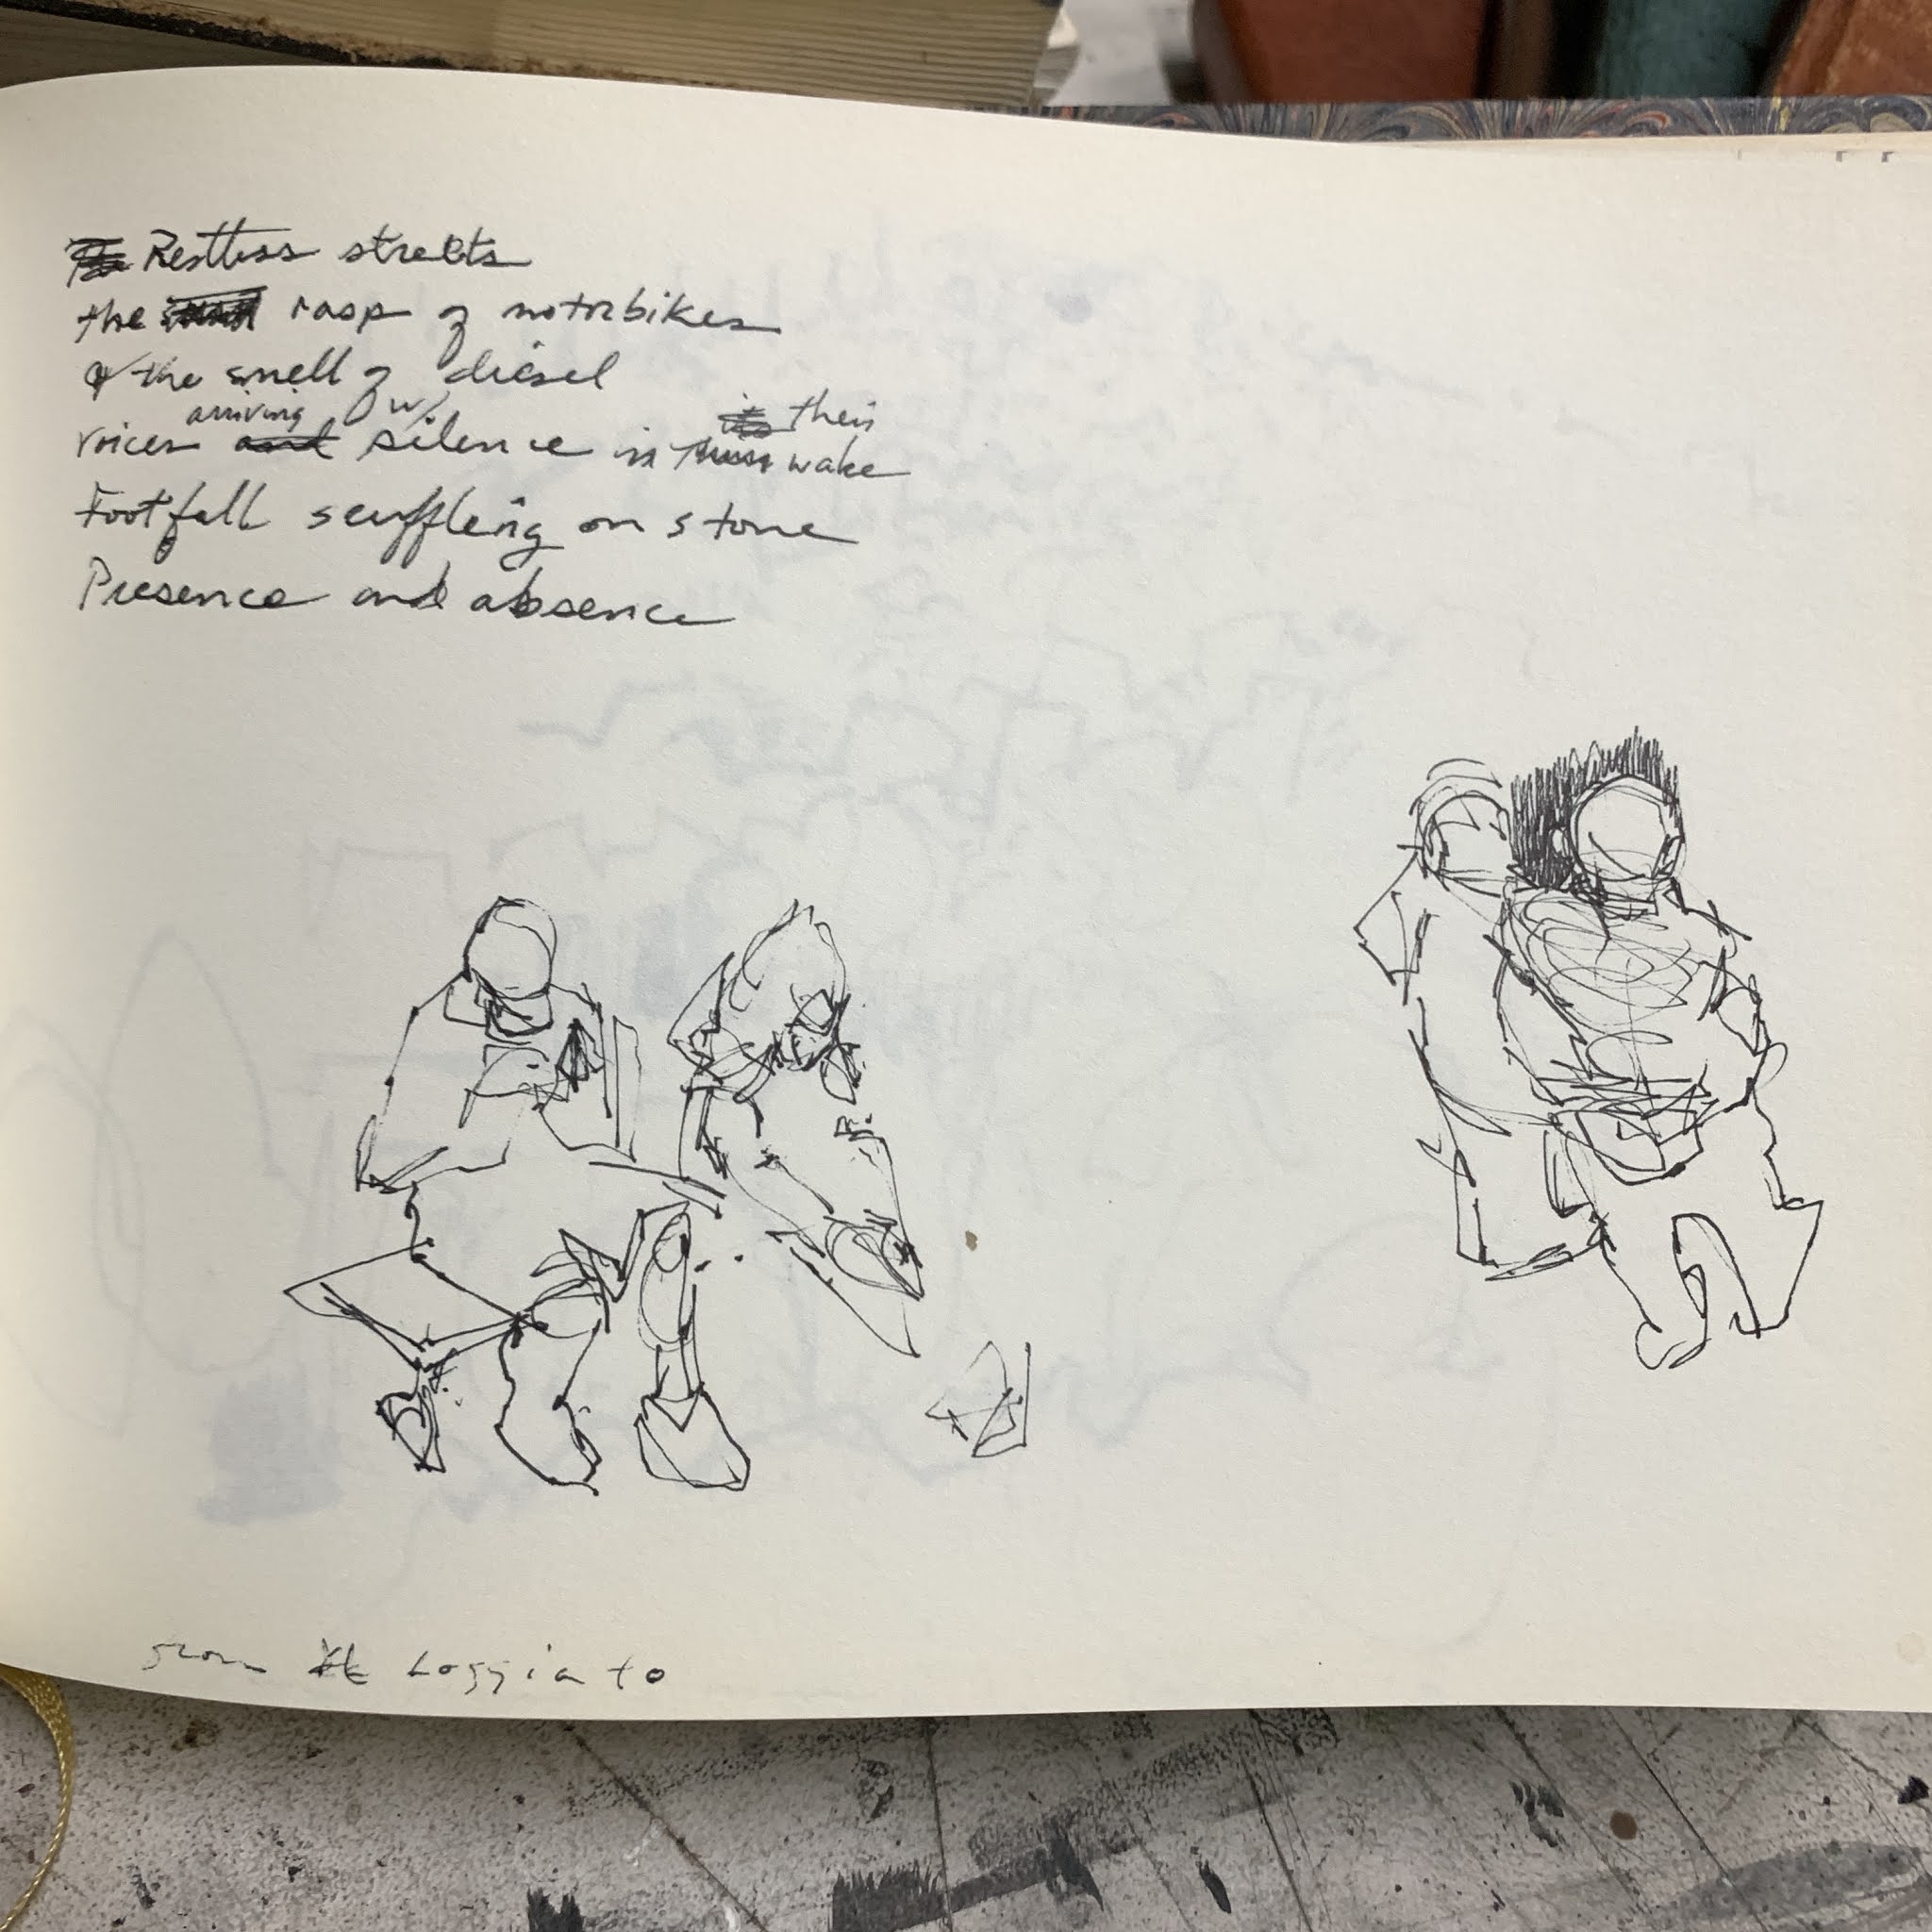 Restless streets
the rasp of motorbikes
& the smell of diesel
voices arriving w/ silence in their wake
Footfall scuffling on stone
Presence and absence
from Loggiato